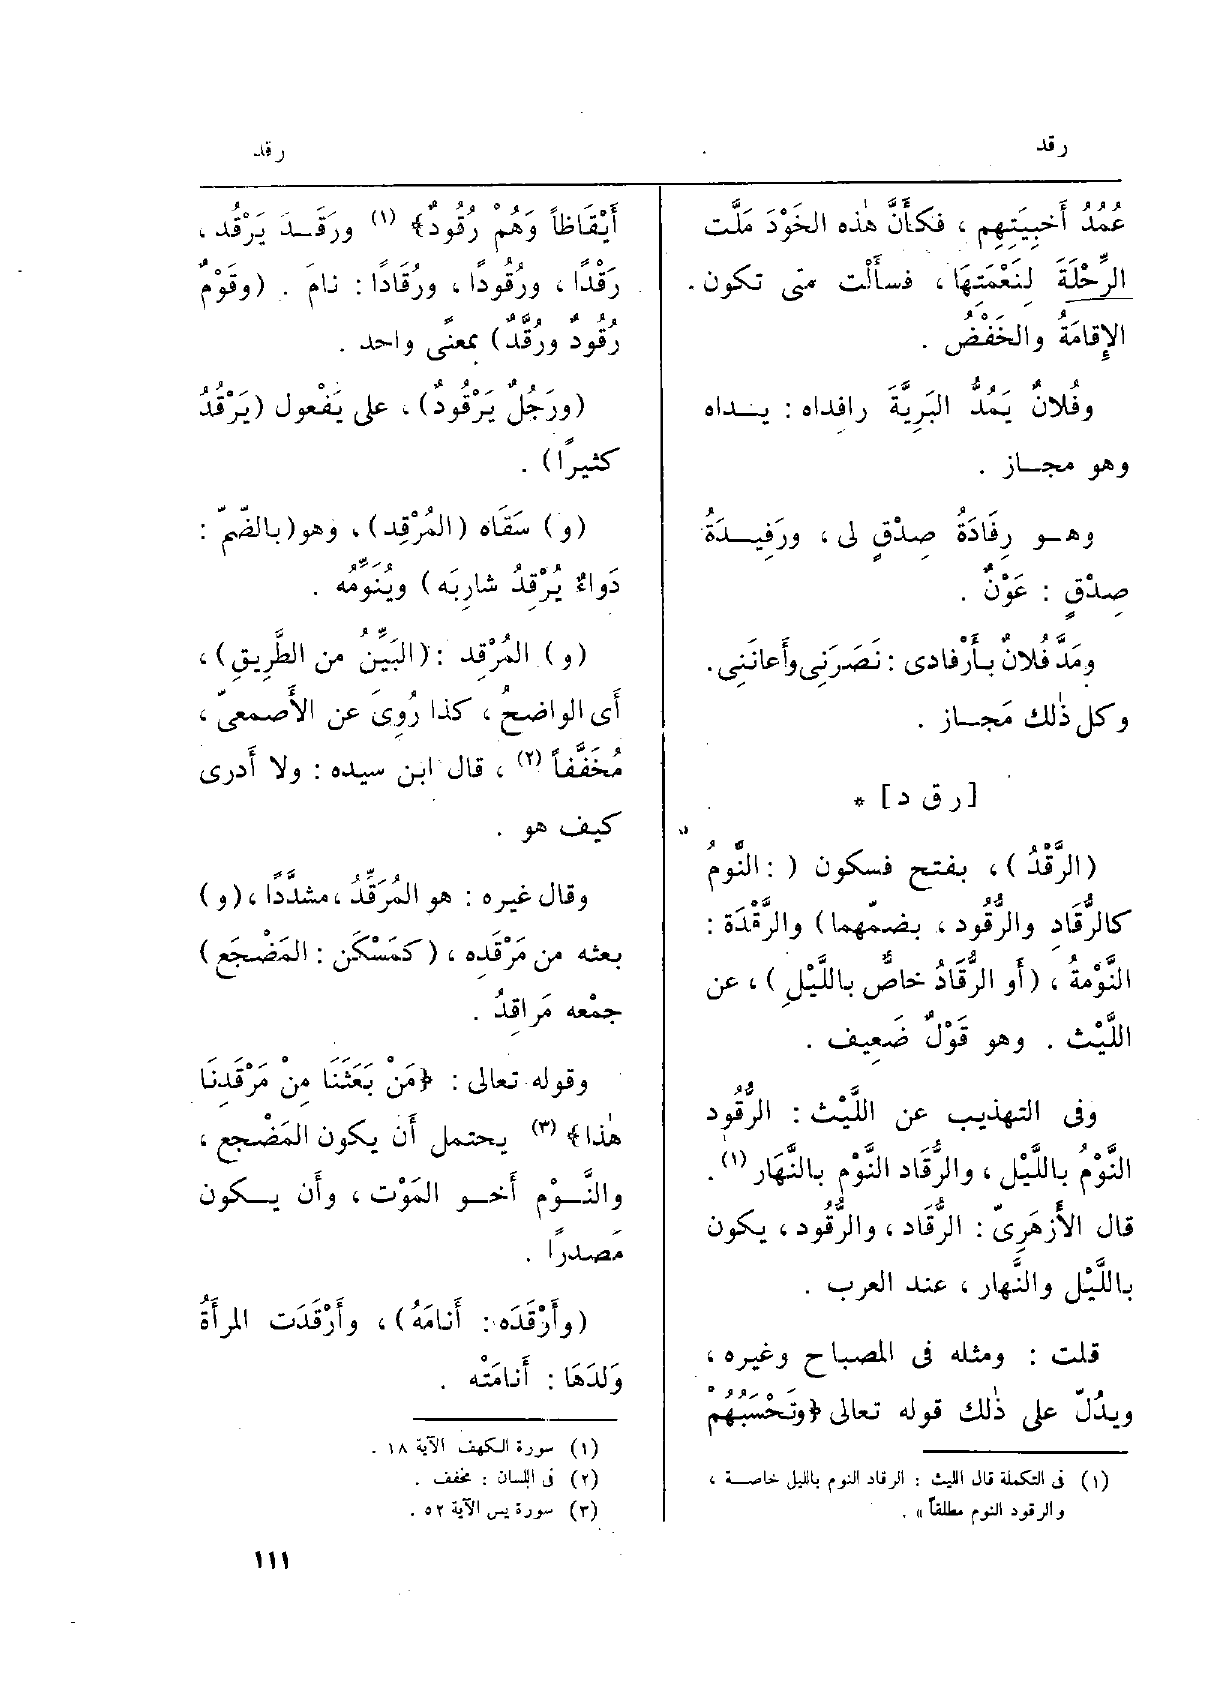 رقد
رقد
عُمُدُ أَخبِيَتِهِم ، فكأَنَّ هٰذه الخَوْدَ مَلَّت
الرِّحْلَةَ لِنَعْمَتِهَا ، فسأَلْت متى تكون .
الإِقامَةُ والخَفْضُ .
وفُلانٌ يَمُدُّ البَرِيَّةَ رافِداه : يــداه
وهو مجــاز .
وهــو رِفَادَةُ صِدْقٍ لى ، ورَفِيــدَةُ
صِدْقٍ : عَوْنٌ .
ومَدَّ فُلانٌ بأَرْفادى : نَصَرَنِى وأَعانَنِى .
وكل ذٰلك مَجــاز .
[ ر ق د ] *
(الرَّقْدُ) ، بفتح فسكون ( : النَّوْمُ
كالرُّقَادِ والرُّقُود ، بضمّهما) والرَّقْدَة :
النَّوْمةُ ، (أَو الرُّقَادُ خاصٌّ باللَّيْلِ) ، عن
اللَّيْث . وهو قَوْلٌ ضَعِيف .
وفى التهذيب عن اللَّيْث : الرُّقُود
النَّوْمُ باللَّيْل ، والرُّقَاد النَّوْم بالنَّهَار (١) .
قال الأَزهَرِىّ : الرُّقَاد ، والرُّقُود ، يكون
باللَّيْل والنَّهار ، عند العرب .
قلت : ومثله فى المصباح وغيره ،
ويدُلّ على ذٰلك قوله تعالى ﴿وتَحْسَبُهُمْ
(١) فى التكملة قال الليث : الرقاد النوم بالليل خاصــة ،
والرقود النوم مطلقاً » .
أَيْقَاظاً وَهُمْ رُقُودٌ﴾ (١) ورَقَــدَ يَرْقُد ،
رَقْدًا ، ورُقُودًا ، ورُقَادًا : نامَ . (وقَوْمٌ
رُقُودٌ ورُقَّدٌ) بمعنًى واحد .
(ورَجُلٌ يَرْقُودٌ) ، على يَفْعول (يَرْقُدُ
كثيرًا) .
(و) سَقَاه (المُرْقِد) ، وهو (بالضّمّ :
دَواءٌ يُرْقِدُ شارِبَه) ويُنَوِّمُه .
(و) المُرْقِد : (البَيِّنُ من الطَّرِيقِ) ،
أَى الواضحُ ، كذا رُوِىَ عن الأَصمعىّ ،
مُخَفَّفاً (٢) ، قال ابن سيده : ولا أَدرى
كيف هو .
وقال غيره : هو المُرَقِّدُ ، مشدَّدًا ، (و)
بعثه من مَرْقَده ، (كمَسْكَن : المَضْجَع)
جمْعه مَراقِدُ .
وقوله تعالى : ﴿مَنْ بَعَثَنَا مِنْ مَرْقَدِنَا
هٰذا﴾ (٣) يحتمل أَن يكون المَضْجع ،
والنَّــوْم أَخــو المَوْت ، وأَن يــكون
مَصدرًا .
(وأَرْقَدَه : أَنامَهُ) ، وأَرْقَدَت المرأَةُ
وَلَدَهَا : أَنامَتْه .
(١) سورة الكهف الآية ١٨ .
(٢) فى اللسان : مخفف .
(٣) سورة يس الآية ٥٢ .
١١١